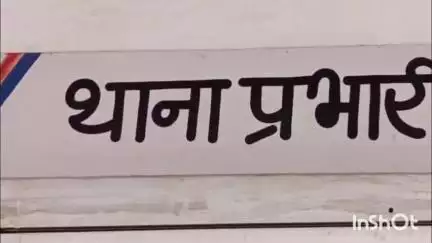 थाना प्रभारी
InShOt